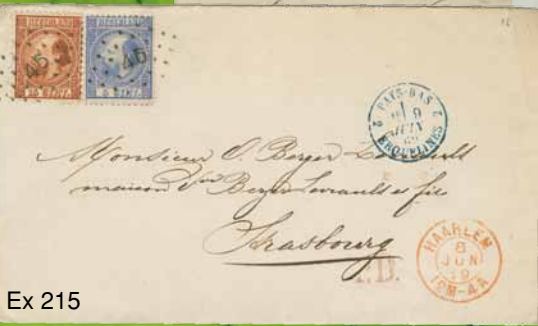 NEDERLAND NEDERLAND
45 45
15 CENT. 5 CENT.
2 PAYS-BAS 2
9
JUIN
ERQUELINES
Monsieur O. Berger Levrault
maison Vve Berger Levrault et fils
Strasbourg
P.D.
HAARLEM
8
JUN
12M-4A
Ex 215